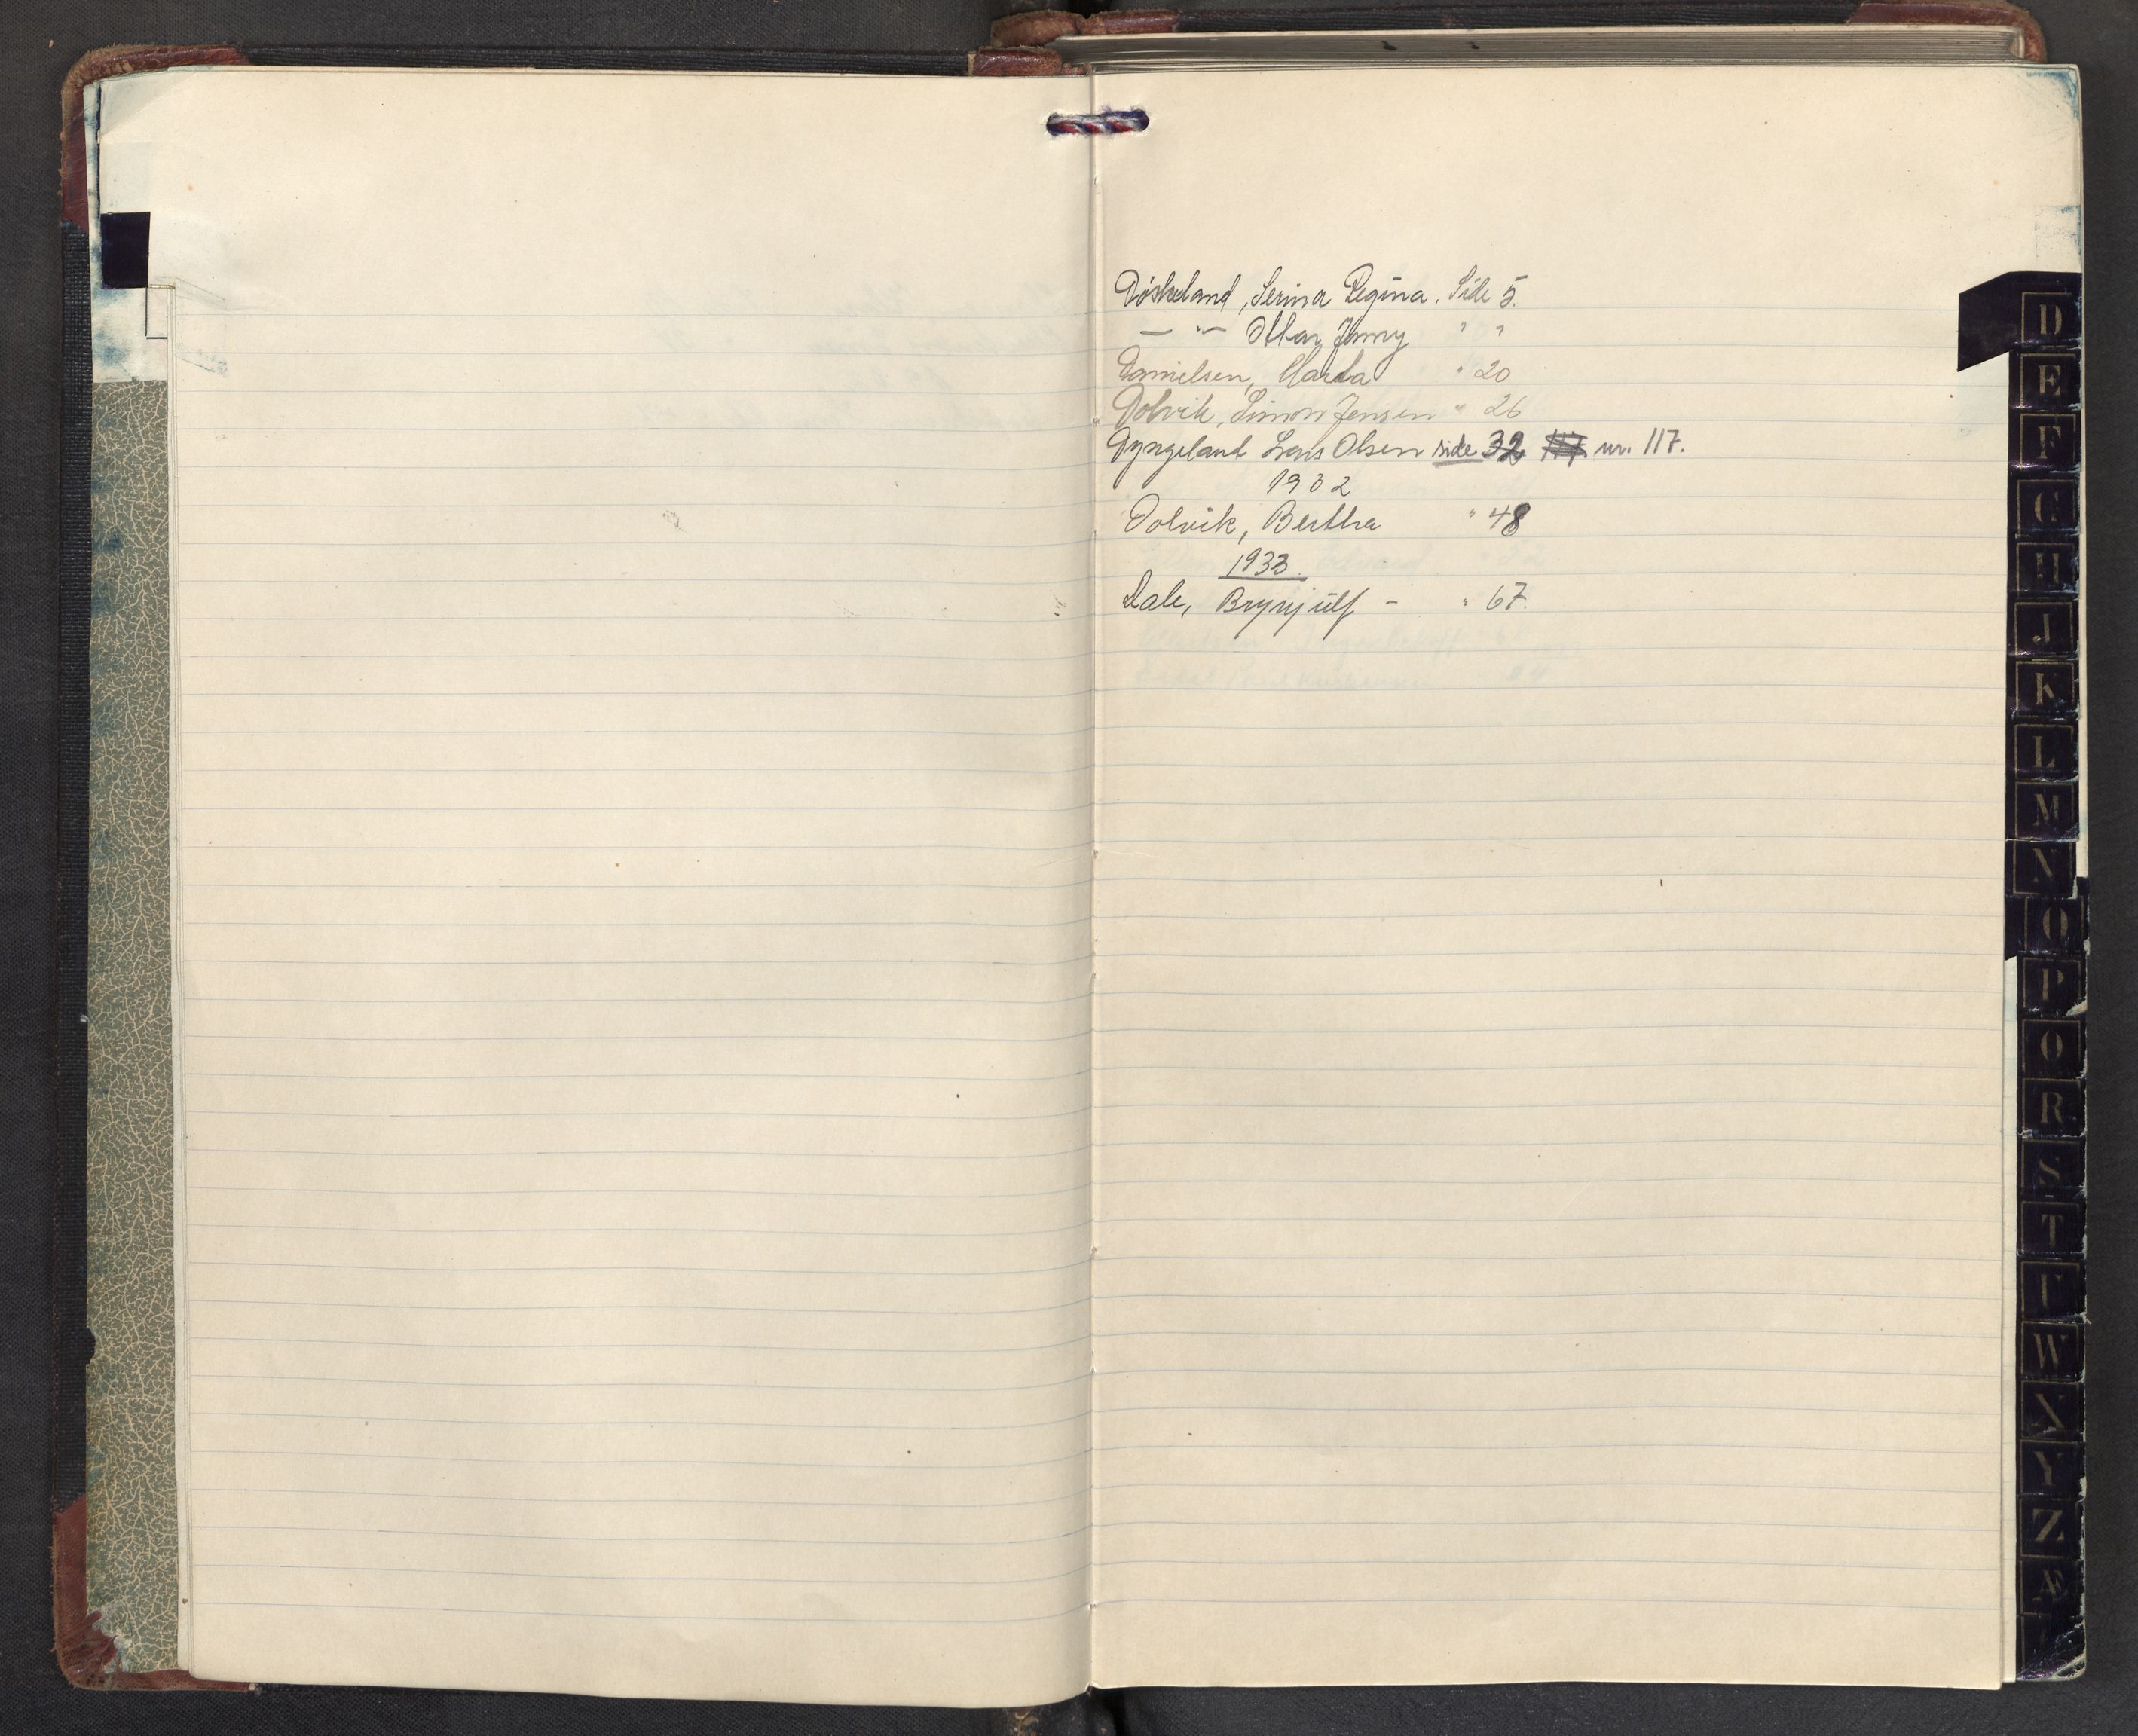 Døskeland, Serina Regina. Side 5.
— " — Ottar Jenny " "
Danielsen, Marta " 20
Dolvik, Simon Jensen " 26
Dyngeland Lars Olsen side 32 nr. 117.
1932
Dolvik, Bertha " 48
1933.
Dale, Brynjulf - " 67.
D
E
F
G
H
J
K
L
M
N
O
P
Ø
R
S
T
U
W
X
Y
Z
Æ